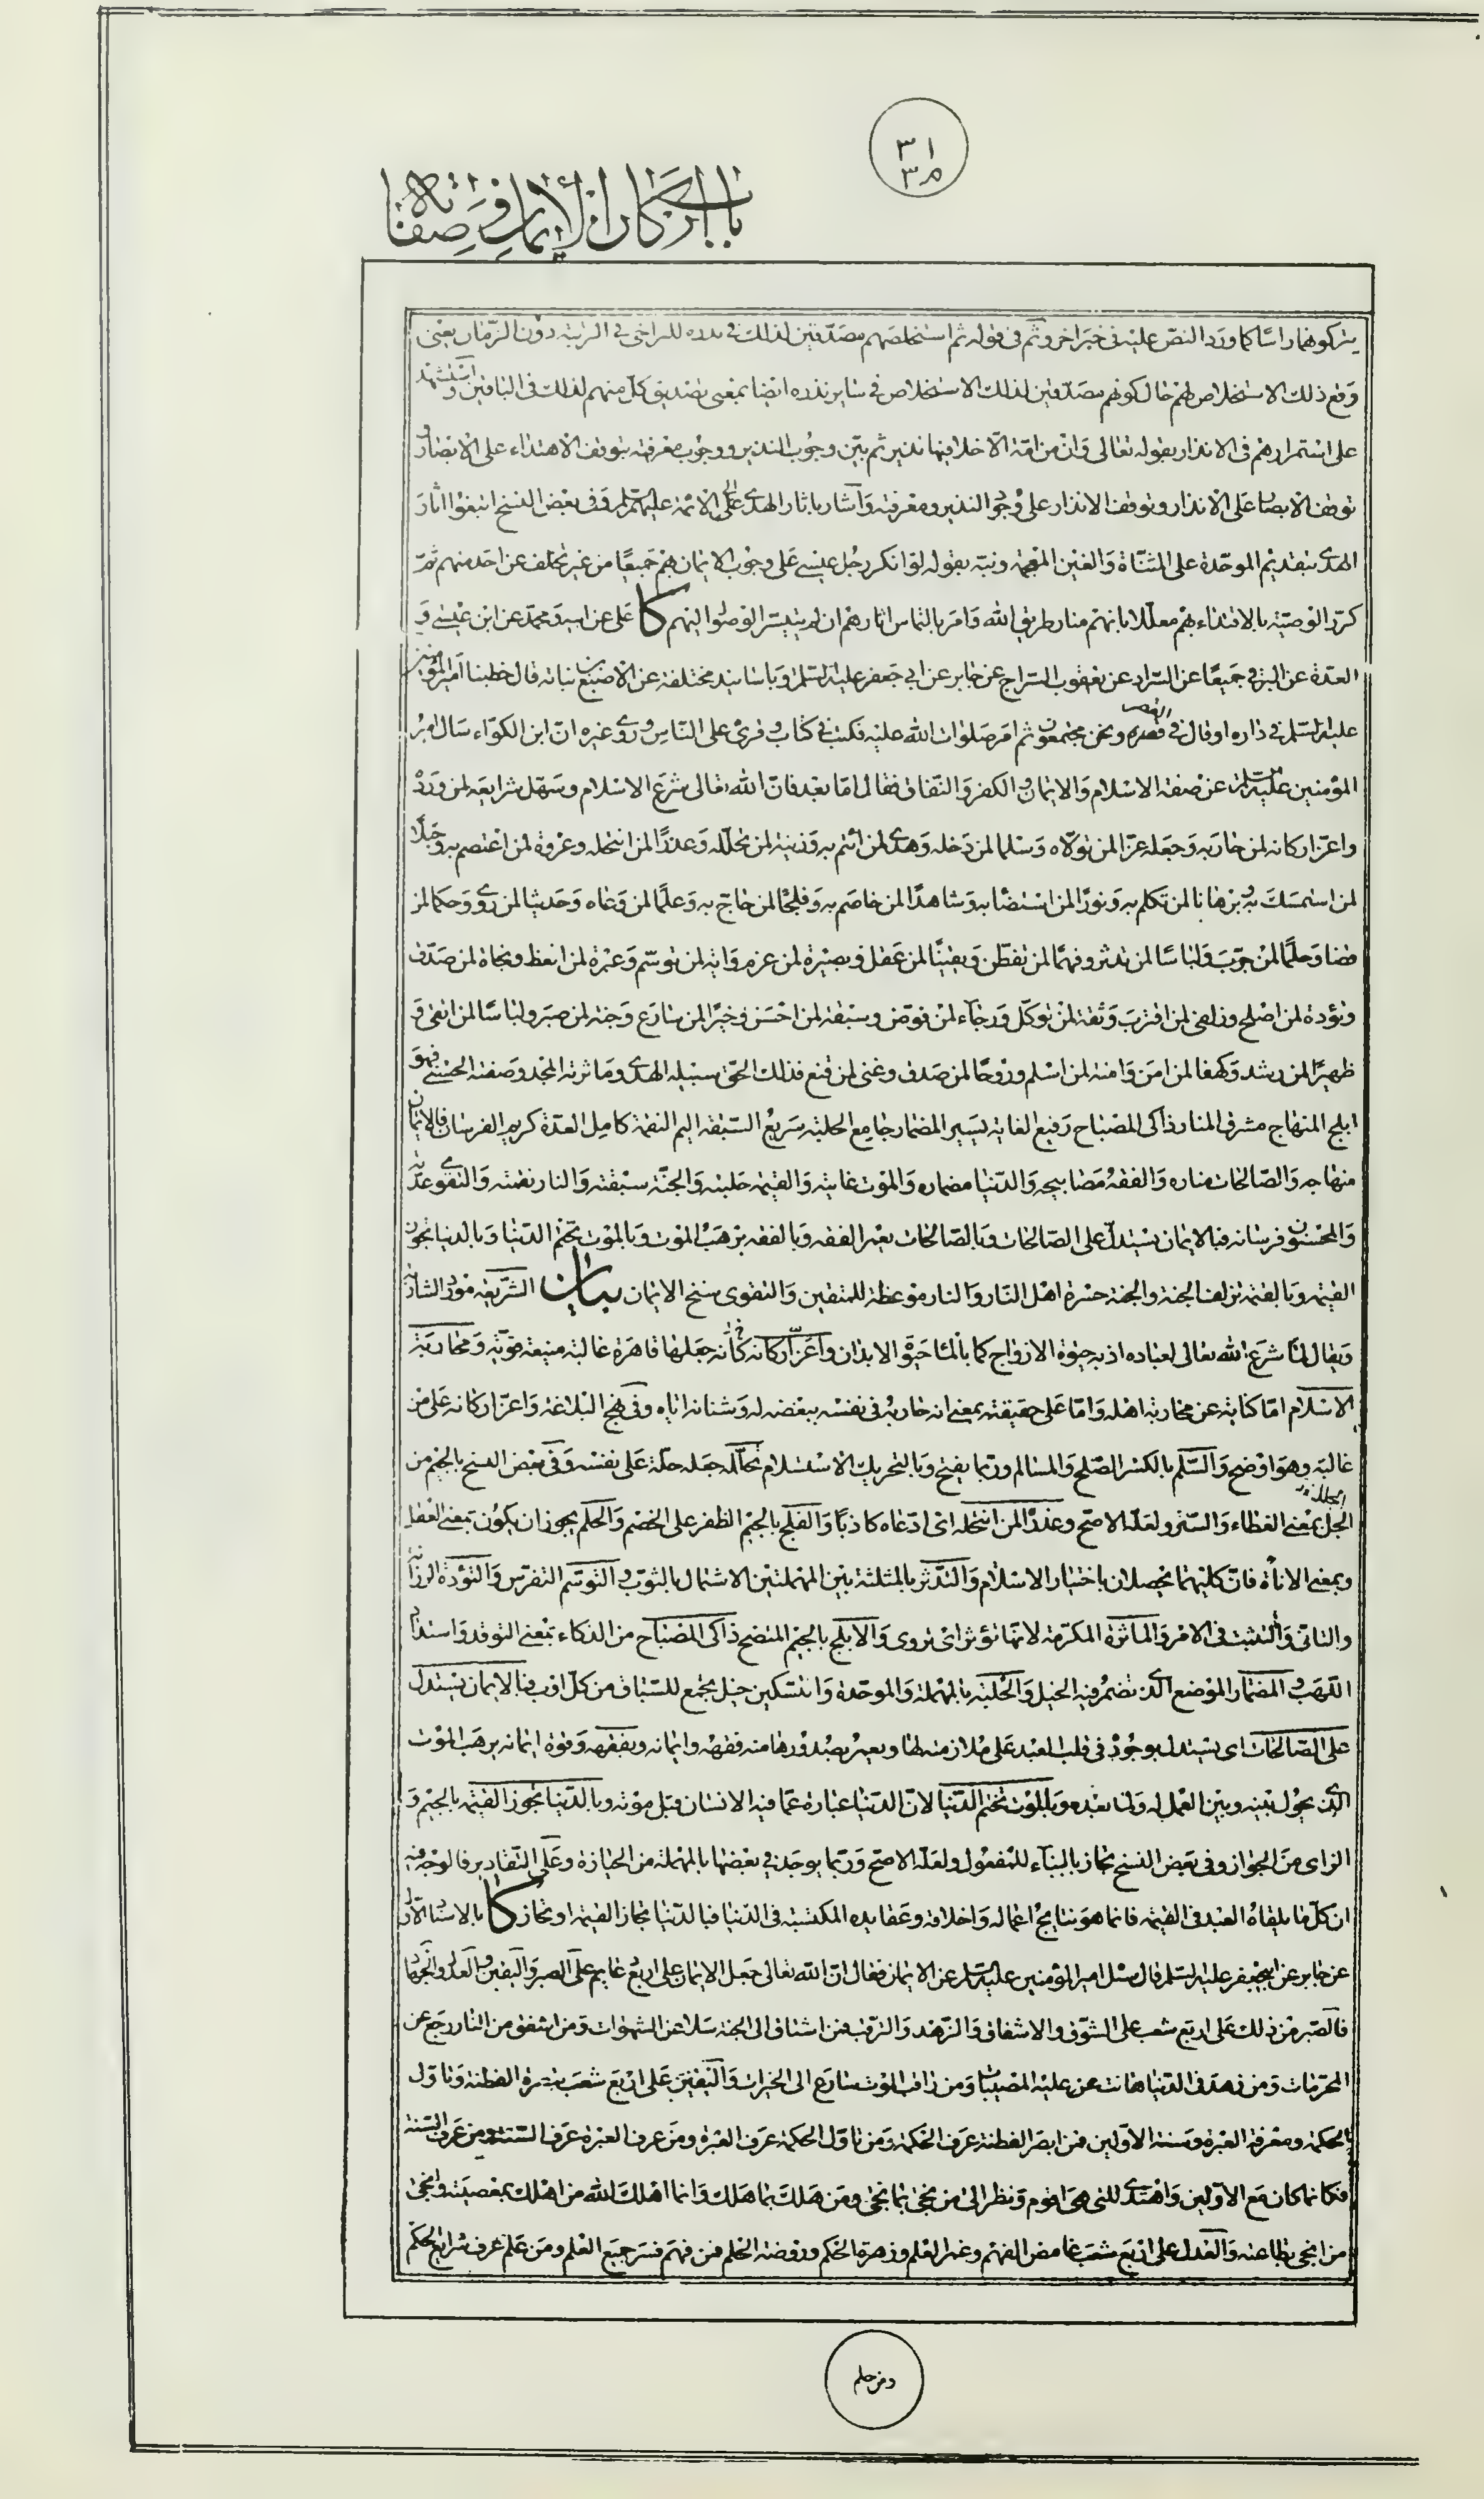 ٣١
٣٥
باب أركان الإيمان وصفاته
يتركوهما راسا كما ورد النص عليه في خبر اخر وثم في قوله ثم استخلصهم مصدقين لذلك في نذره للتراخي في الرتبة دون الزمان يعني
وقع ذلك الاستخلاص لهم حال كونهم مصدقين لذلك الاستخلاص في ساير نذره ايضا بمعنى تصديق كل منهم لذلك في الباقين واستشهد
على استمرارهم في الانذار بقوله تعالى وان من امة الا خلا فيها نذير ثم بين وجوب النذير ووجوب معرفته بتوقف الاهتداء على الابصار و
توقف الابصار على الانذار وتوقف الانذار على وجود النذير ومعرفته واشار باثار الهدى الى الائمة عليهم السلم وفي بعض النسخ ابتغوا اثار
الهدى بتقديم الموحدة على المثناة والغين المعجمة ونبه بقوله لو انكر رجل عيسى على وجوب الايمان بهم جميعا من غير تخلف عن احد منهم ثم
كرر الوصية بالاقتداء بهم معللا بانهم منار طريق الله وامر بالتماس اثارهم ان لم يتيسر الوصول اليهم كا علي عن ابيه ومحمد عن ابن عيسى و
العدة عن البرقي جميعا عن السراد عن يعقوب السراج عن جابر عن ابي جعفر عليه السلم وباسانيد مختلفة عن الاصبغ بن نباته قال خطبنا امير المؤمنين
عليه السلم في داره او قال في القصر ونحن مجتمعون ثم امر صلوات الله عليه فكتب في كتاب وقرئ على الناس وروى غيره ان ابن الكواء سال امير
المؤمنين عليه السلم عن صفة الاسلام والايمان والكفر والنفاق فقال اما بعد فان الله تعالى شرع الاسلام وسهل شرايعه لمن ورده
واعز اركانه لمن حاربه وجعله عزا لمن تولاه وسلما لمن دخله وهدى لمن ائتم به وزينة لمن تجلله وعذرا لمن انتحله وعروة لمن اعتصم به وحبلا
لمن استمسك به وبرهانا لمن تكلم به ونورا لمن استضاء به وشاهدا لمن خاصم به وفلجا لمن حاج به وعلما لمن وعاه وحديثا لمن روى وحكما لمن
قضا وحلما لمن جرب ولباسا لمن تدثر وفهما لمن تفطن ويقينا لمن عقل وبصيرة لمن عزم واية لمن توسم وعبرة لمن اتعظ ونجاة لمن صدق
وتؤدة لمن اصلح وزلفى لمن اقترب وثقة لمن توكل ورجاء لمن فوض وسبقة لمن احسن وخيرا لمن سارع وجنة لمن صبر ولباسا لمن اتقى و
ظهيرا لمن رشد وكهفا لمن امن وامنة لمن اسلم وروحا لمن صدق وغنى لمن قنع فذلك الحق سبيله الهدى وماثرته المجد وصفته الحسنى فهو
ابلج المنهاج مشرق المنار ذاكى المصباح رفيع الغاية يسير المضمار جامع الحلبة سريع السبقة اليم النقمة كامل العدة كريم الفرسان فالايمان
منهاجه والصالحات مناره والفقه مصابيحه والدنيا مضماره والموت غايته والقيمة حلبته والجنة سبقته والنار نقمته والتقوى عدته
والمحسنون فرسانه فبالايمان يستدل على الصالحات وبالصالحات يعمر الفقه وبالفقه يرهب الموت وبالموت تختم الدنيا وبالدنيا تجوز
القيمة وبالقيمة تزلف الجنة والجنة حسرة اهل النار والنار موعظة للمتقين والتقوى سنخ الايمان بيان الشريعة مورد الشاربة
ويقال لما شرع الله تعالى لعباده اذ به حيوة الارواح كما بالماء حيوة الابدان واعز اركانه كأنه جعلها قاهرة غالبة منيعة قوية ومحاربة
الاسلام اما كناية عن محاربة اهله واما على حقيقته بمعنى انه حاربه في نفسه ببغضه له وشنانه اياه وفي نهج البلاغة واعز اركانه على من
غالبه وهو اوضح والسلم بالكسر الصلح والمسالم وربما يفتح وبالتحريك الاستسلام تحلله جعله حلة على نفسه وفي بعض النسخ بالجيم من
الجل بمعنى الغطاء والستر ولعله الاصح وعذرا لمن انتحله اى ادعاه كاذبا والفلج بالجيم الظفر على الخصم والحلم يجوز ان يكون بمعنى العقل
وبمعنى الاناة فان كليهما يحصلان باختيار الاسلام والتدثر بالمثلثة بين المهملتين الاشتمال بالثوب والتوسم التفرس والتؤدة الرزانة
والتانى والتثبت في الامر والماثرة المكرمة لانها تؤثر اى تروى والابلج بالجيم المتضح ذاكى المصباح من الذكاء بمعنى التوقد واشتداد
اللهب والمضمار الموضع الذى تضمر فيه الخيل والحلبة بالمهملة والموحدة وبالتسكين خيل تجمع للسباق من كل اوب فبالايمان يستدل
على الصالحات اى يستدل بوجوده في قلب العبد على ملازمته لها وبصدورها منه فقهه وايمانه وبفقهه وقوة ايمانه يرهب الموت
الذى يحول بينه وبين العمل له ولما بعده وبالموت تختم الدنيا لان الدنيا عبارة عما فيه الانسان قبل موته وبالدنيا تجوز القيمة بالجيم و
الزاى من الجواز وفي بعض النسخ تجاز بالبناء للمفعول ولعله الاصح وربما يوجد في بعضها بالمهملة من الحيازة وعلى التقادير فالوجه فيه
ان كل ما يلقاه العبد في القيمة فانما هو نتايج اعماله واخلاقه وعقايده المكتسبة في الدنيا فبالدنيا تجاز القيمة او تحاز كا بالاسناد الاول
عن جابر عن ابيجعفر عليه السلم قال سئل امير المؤمنين عليه السلم عن الايمان فقال ان الله تعالى جعل الايمان على اربع دعايم على الصبر واليقين والعدل والجهاد
فالصبر من ذلك على اربع شعب على الشوق والاشفاق والزهد والترقب فمن اشتاق الى الجنة سلا عن الشهوات ومن اشفق من النار رجع عن
المحرمات ومن زهد في الدنيا هانت عليه المصيبات ومن راقب الموت سارع الى الخيرات واليقين على اربع شعب تبصرة الفطنة وتاول
الحكمة ومعرفة العبرة وسنة الاولين فمن ابصر الفطنة عرف الحكمة ومن تاول الحكمة عرف العبرة ومن عرف العبرة عرف السنة ومن عرف السنة
فكانما كان مع الاولين واهتدى للتى هى اقوم ونظر الى من نجى بما نجى ومن هلك بما هلك وانما اهلك الله من اهلك بمعصيته وانجى
من انجى بطاعته والعدل على اربع شعب غامض الفهم وغمر العلم وزهرة الحكم وروضة الحلم فمن فهم فسر جميع العلم ومن علم عرف شرايع الحكم
ومن حلم